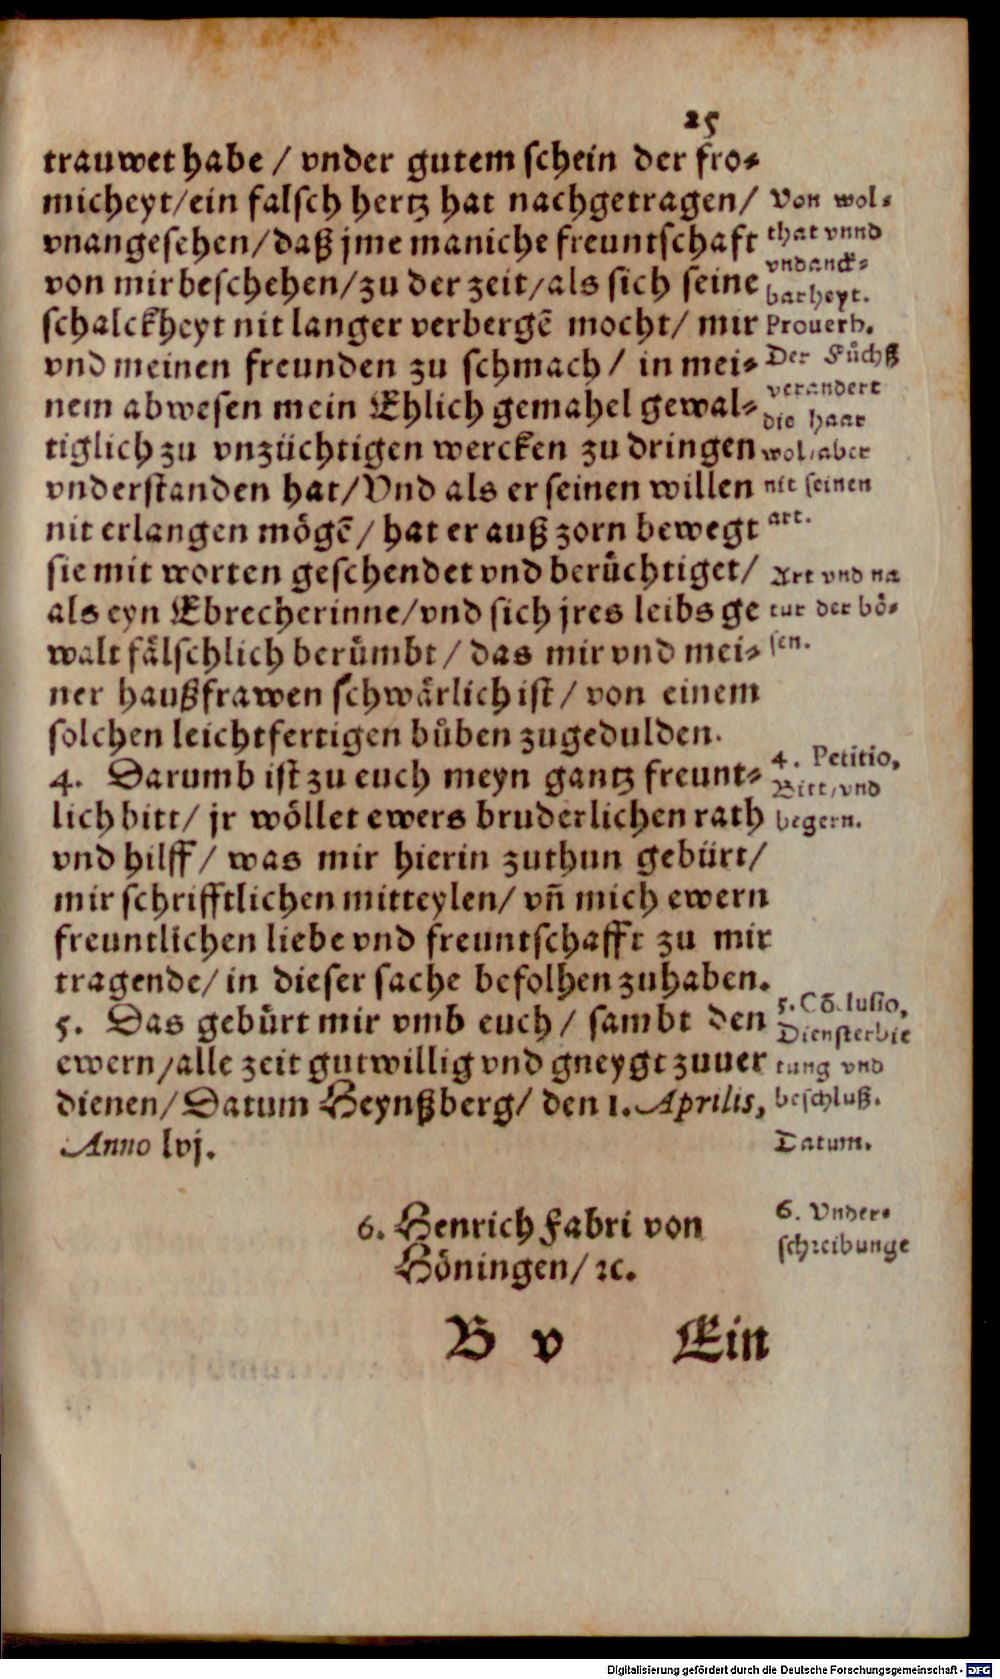 25
trauwet habe / vnder gutem schein der fro⸗
micheyt/ein falsch hertz hat nachgetragen/
vnangesehen/daß jme maniche freuntschaft
von mir beschehen/zu der zeit/als sich seine
schalckheyt nit langer verbergē mocht/ mir
vnd meinen freunden zu schmach / in mei⸗
nem abwesen mein Ehlich gemahel gewal⸗
tiglich zu vnzüchtigen wercken zu dringen
vnderstanden hat/Vnd als er seinen willen
nit erlangen mögē/ hat er auß zorn bewegt
sie mit worten geschendet vnd berüchtiget/
als eyn Ebrecherinne/vnd sich jres leibs ge
walt fälschlich berümbt / das mir vnd mei⸗
ner haußfrawen schwärlich ist / von einem
solchen leichtfertigen bůben zugedulden.
4. Darumb ist zu euch meyn gantz freunt⸗
lich bitt/ jr wöllet ewers bruderlichen rath
vnd hilff / was mir hierin zuthun gebürt/
mir schrifftlichen mitteylen/ vñ mich ewern
freuntlichen liebe vnd freuntschafft zu mir
tragende/ in dieser sache befolhen zuhaben.
5. Das gebürt mir vmb euch / sambt den
ewern/alle zeit gutwillig vnd gneygt zuuer
dienen/ Datum Heynßberg/ den 1. Aprilis,
Anno lvj.
6. Henrich Fabri von
Höningen/ ꝛc.
B v
Ein
Von wol⸗
that vnnd
vndanck⸗
barheyt.
Prouerb.
Der Füchß
verandert
die haar
wol/aber
nit seinen
art.
Art vnd na
tur der bö⸗
sen.
4. Petitio,
Bitt/vnd
begern.
5. Cōclusio,
Diensterbie
tung vnd
beschluß.
Datum.
6. Vnder⸗
schreibunge
Digitalisierung gefördert durch die Deutsche Forschungsgemeinschaft - DFG